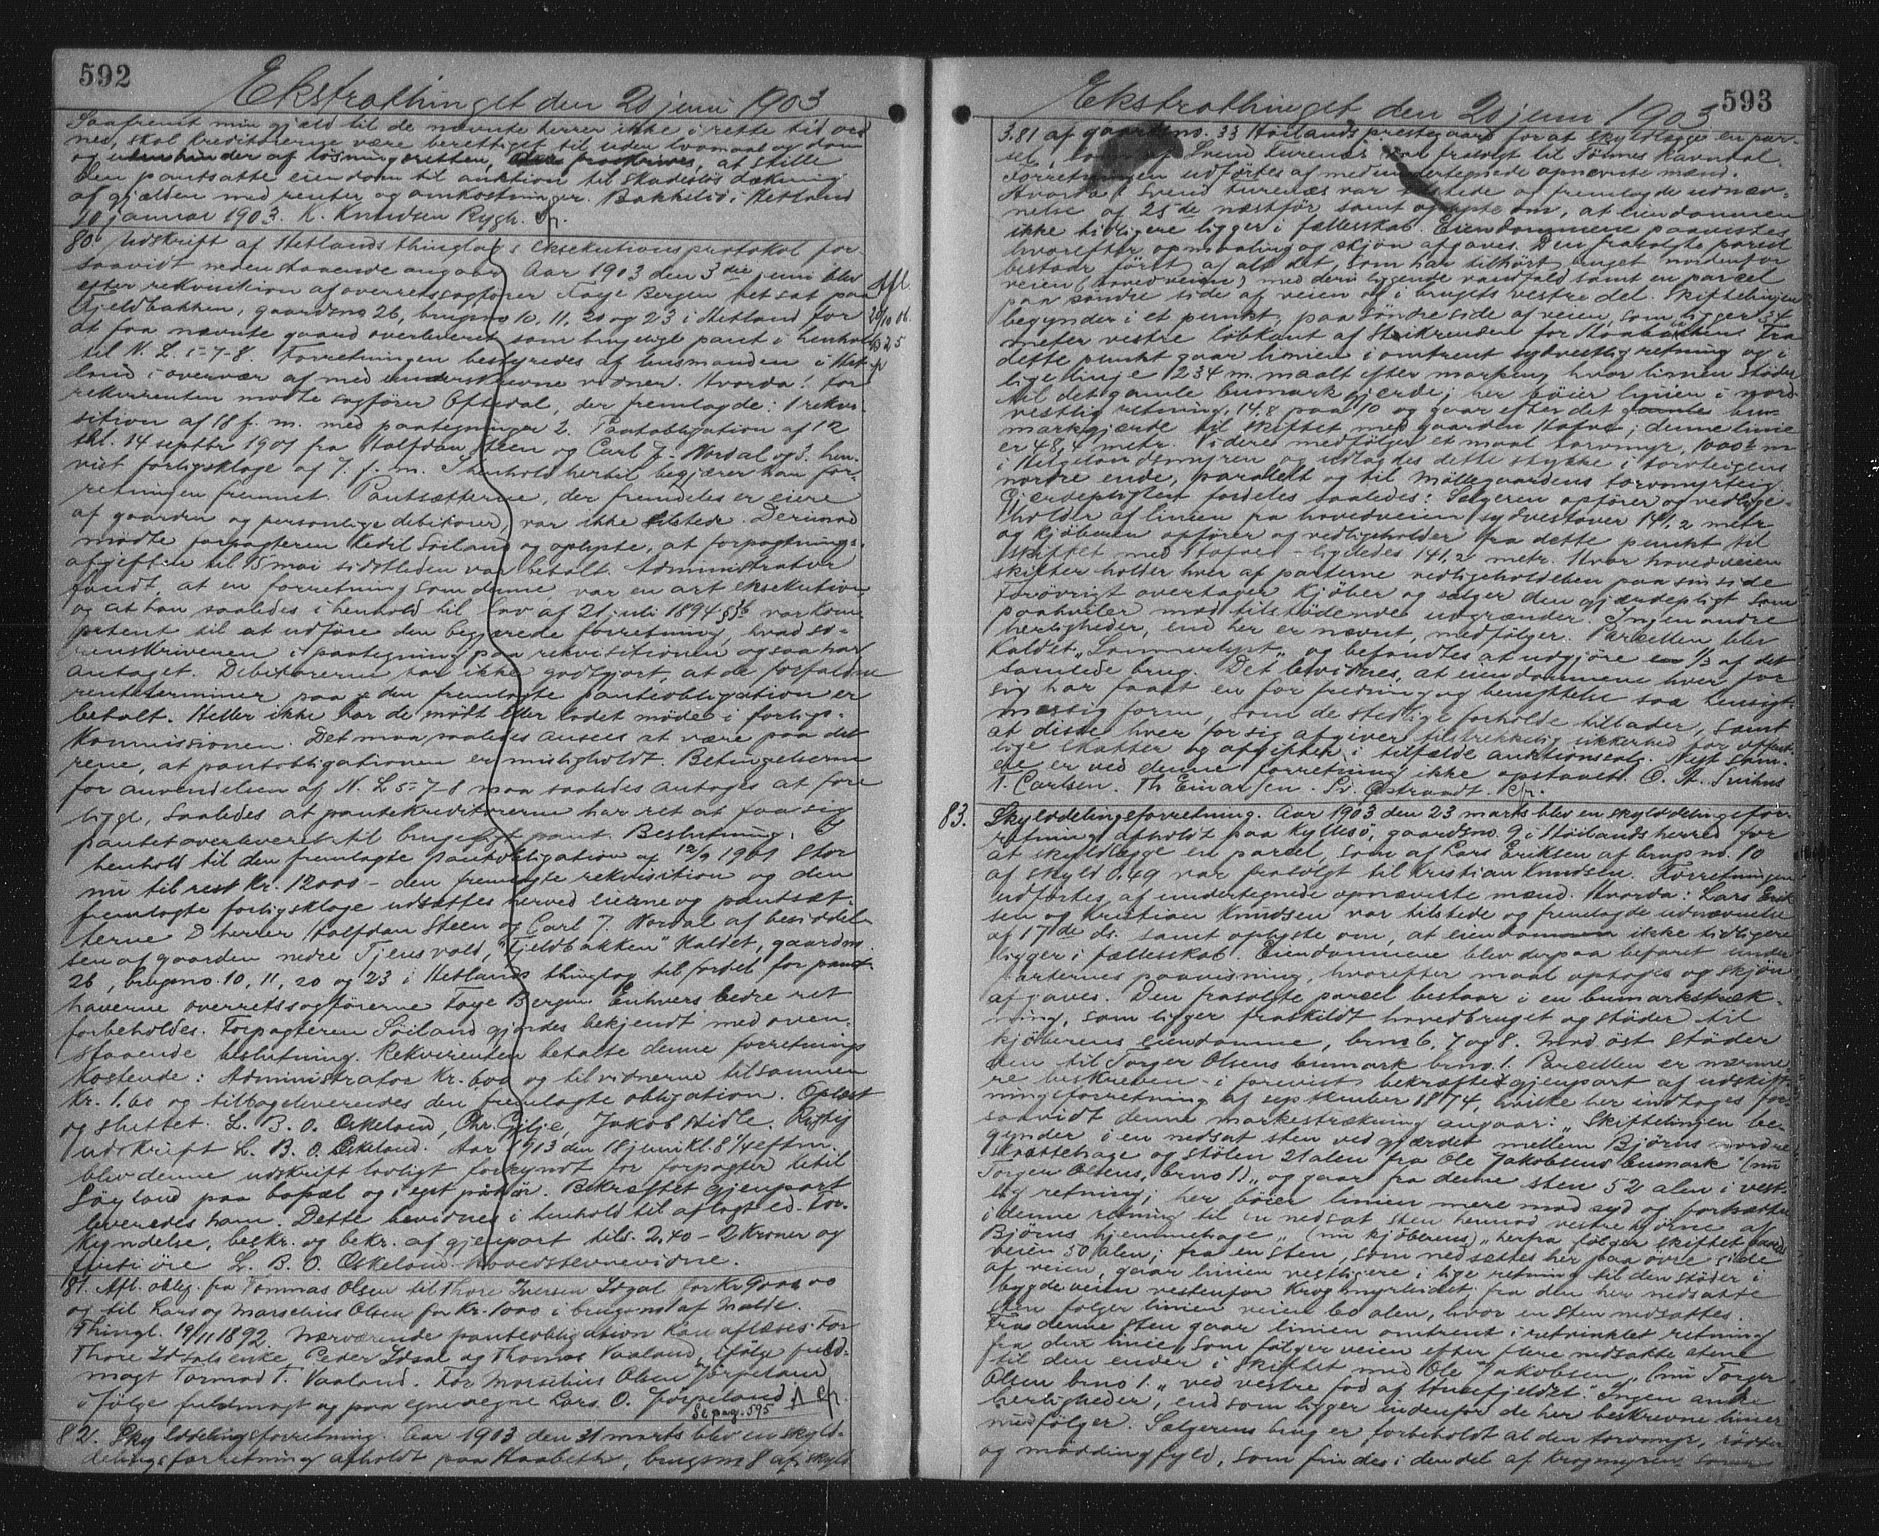 592
Ekstrathinget den 20 juni 1903
Saafremt min gjæld til de nævnte herrer ikke i rette tid ved
nes, skal kreditorerne være berettiget til uden lovmaal og dom
og uden hinder af løsningsretten, at stille
den pantsatte eiendom til auktion til skadesløs dækning
af gjælden med renter og omkostninger. Bakkelid i Hetland
10 januar 1903. K. Knudsen Rygh.
80. Udskrift af Hetlands thinglags eksekutionsprotokol for-
saavidt nedenstaaende angaar. Aar 1903 den 3die juni blev
efter rekvisition af overretssagfører Faye Bergen ret sat paa
Fjeldbakken, gaardsno 26, brugsno 10, 11, 20 og 23 i Hetland for
at faa nævnte gaard overleveret som brugeligt pant i henhold
til N. L. 5-7-8. Forretningen bestyredes af lensmanden i Het-
land i overvær af medunderskrevne vidner. Hvorda: For
rekvirenten mødte sagfører Oftedal, der fremlagde: 1 rekvi-
sition af 18 f. m. med paategninger 2. Pantobligation af 12
skr. 14 septbr 1901 fra Halfdan Steen og Carl J. Nordal og 3. hen-
vist forligsklage af 7. f. m. I henhold hertil begjærer han for-
retningen fremmet. Pantsætterne, der fremdeles er eiere
af gaarden og personlige debitorer, var ikke tilstede. Derimod
mødte forpagteren Kedil Søiland og oplyste, at forpagtnings-
afgiften til 15 mai sidstleden var betalt. Administrator
fandt, at en forretning som denne var en art eksekution
og at han saaledes i henhold til lov af 21 juli 1894 § 36 var kom-
petent til at udføre den begjærede forretning, hvad so-
renskriveren i paategning paa rekvisitionen ogsaa har
antaget. Debitorerne har ikke godtgjort, at de forfaldne
renteterminer paa den fremlagte panteobligation er
betalt. Heller ikke har de mødt eller ladet møde i forligs-
kommissionen. Det maa saaledes ansees at være paa det
rene, at pantobligationen er misligholdt. Betingelserne
for anvendelsen af N. L 5-7-8 maa saaledes antages at fore
ligge, saaledes at pantekreditorerne har ret at faa sig
pantet overleveret til brugeligt pant. Beslutning: I
henhold til den fremlagte pantobligation af 12/9 1901 stor
nu til rest Kr. 12000 - den fremlagte rekvisition og den
fremlagte forligsklage udsættes herved eierne og pantsæt-
terne D'herrer Halfdan Steen og Carl J. Nordal af besiddel-
sen af gaarden nedre Tjensvold, "Fjeldbakken" kaldet, gaardsno
26, brugsno. 10, 11, 20 og 23 i Hetlands thinglag til fordel for pant-
haverne overretssagførerne Faye Bergen. Enhvers bedre ret
forbeholdes. Forpagteren Søiland gjordes bekjendt med oven-
staaende beslutning. Rekvirenten betalte denne forretnings
kostende: Administrator Kr. 6.00 og til vidnerne tilsammen
Kr. 1.60 og tilbageleveredes den fremlagte obligation. Oplæst
og sluttet. L. B. O. Eskeland, Chr. Gilje, Jakob Hidle. Rigtig
udskrift L. B. O. Eskeland. Aar 1903 den 18 juni kl. 8 1/4 eftm.
blev denne udskrift lovligt forkyndt for forpagter Ketil
Søyland paa bopæl og i eget paahør. Bekræftet gjenpart
leveredes ham. Dette bevidnes i henhold til aflagt ed. For-
kyndelse, beskr. og bekr. af gjenpart tils. 2,40 - 2 kroner og
firti øre L. B. O. Eskeland hovedstevnevidne.
Afl.
29/10 06.
81. Afl. oblig. fra Tommas Olsen til Thore Iversen Idsal for Kr. 9000.00
og til Lars og Marselius Olsen for Kr. 1000 i brugsno 1 af Malde.
Thingl. 19/11 1892. Nærværende panteobligation kan aflæses. For
Thore Idsals enke, Peder Idsal og Thomas Vaaland, ifølge fuld-
magt Tormod T. Vaaland. For Marselius Olsen Jørpeland
i følge fuldmagt og paa egne vegne Lars O. Jørpeland
Se pag. 595
82. Skylddelingsforretning. Aar 1903 den 31 marts blev en skyld-
delingsforretning afholdt paa Haabeth, brugsno 8 af skyld
593
Ekstrathinget den 20 juni 1903
3.81 af gaardsno. 33 Høilands prestegaard for at skyldlægge en par-
sel, som af Svend Turenæs var frasolgt til Tønnes Ravndal.
Forretningen udførtes af medundertegnede opnævnte mænd.
Hvorda: Svend Turenæs var tilstede og fremlagde udnæv-
nelse af 25de næstfør samt oplyste om, at eiendommen
ikke tidligere ligger i fælleskab. Eiendommene paavistes
hvorefter opmaaling og skjøn afgaves. Den frasolgte parsel
bestaar først af alt det, som har tilhørt bruget nordenfor
veien (hovedveien) med deri liggende vandfald samt en parcel
paa søndre side af veien og i brugets vestre del. Skiftelinjen
begynder i et punkt paa søndre side af veien, som ligger 34
meter vestre løbkant af Stikrenden for Haabakken. Fra
dette punkt gaar linien i omtrent sydvestlig retning og i
lige linje 1234 m. maalt efter marken hvor linien støder
til det gamle bumarkgjerde; her bøier linien i nord
vestlig retning, 14,8 paa 10 og gaar efter det gamle bu-
markgjærde til skiftet med gaarden Hofve; denne linie
er 48,4 metr. Videre medfølger et maal torvmyr, 1000 □ m
i Helgelandsmyren og udlagdes dette stykke i torvteigens
nordre ende, parallelt og til Møllegaardens torvmyrteig.
Gjærdepligten fordeles saaledes: Sælgeren opfører og vedlige-
holder af linien fra hovedveien sydvestover 141,2 metr.
og kjøberen opfører og vedligeholder fra dette punkt til
skiftet med Hofve - ligeledes 141,2 metr. Hvor hovedveien
skifter holder hver af parterne vedligeholdelsen paa sin side
forøvrigt overtager kjøber og sælger den gjærdepligt som
paahviler mod tilstødende udgrænder. Ingen andre
herligheder, end her er nævnt, medfølger. Parcellen blev
kaldet "Sommerlyst" og befandtes at udgjøre 1/3 af det
samlede brug. Det bevidnes, at eiendommene hver for
sig har faaet en for fredning og benyttelse saa hensigts-
mæssig form, som de stedlige forholde tillader, samt
at disse hver for sig afgiver tilstrækkelig sikkerhed for offent-
lige skatter og afgifter i tilfælde auktionssalg. Nyt sam-
eie er ved denne forretning ikke opstaaet. O. A.
T. Carlsen. Th Einarsen. Sv. Østraadt.
83. Skylddelingsforretning. Aar 1903 den 23 marts blev en skylddelingsfor-
retning afholdt paa Kyllesø, gaardsno. 9 i Høilands herred for
at skyldlægge en parcel, som af Lars Eriksen af brugsno. 10
af skyld 0.49 var frasolgt til Kristian Knudsen. Forretningen
udførtes af undertegnede opnævnte mænd. Hvorda: Lars Erik-
sen og Kristian Knudsen var tilstede og fremlagde udnævnelse
af 17de ds. samt oplyste om, at eiendommen ikke tidligere
ligger i fælleskab. Eiendommene blev derpaa befaret under
parternes paavisning, hvorefter maal optoges og skjøn
afgaves. Den frasolgte parcel bestaar i en bumarkstræk-
ning, som ligger fraskildt hovedbruget og støder til
kjøberens eiendomme, brno 6, 7 og 8. Mod øst støder
den til Torger Olsens bumark brno. 1. Parcellen er nærme-
re beskreven i forevist bekræftet gjenpart af udskift-
ningsforretning af september 1874, hvilke her indtages for-
saavidt denne markestrækning angaar: "Skiftelinjen be-
gynder i en nedsat sten ved gjærdet mellem Bjørns nordre
hage og stølen 21 alen fra Ole Jakobsens bumark" (nu
Torger Olsens, brno 1) "og gaar fra denne sten 52 alen i vest-
lig retning; her bøier linien mere mod syd og fortsætter
i denne retning til en nedsat sten henmod vestre hjørne af
Bjørns hjemmehage" (nu kjøberens) "herfra følger skiftet
veien 50 alen; fra en sten, som nedsættes her paa øvre side
af veien, gaar linien vestligere i lige retning til den støder i
bygdeveien vestenfor Krogmyrleidet. fra den her nedsatte
sten følger linien veien 60 alen, hvor en sten nedsattes.
Fra denne sten gaar linien omtrent i retvinklet retning
fra den linie, som følger veien efter flere nedsatte stene
til den ender i skiftet med Ole Jakobsen, (nu Torger
Olsen brno 1. "ved vestre fod af Stuefjeldet". Ingen andre
herligheder, end som ligger indenfor de her beskrevne linier
medfølger. Sælgerens brug er forbeholdt al den torvmyr, rødder
og møddingfyld, som findes i den del af Krogmyren som